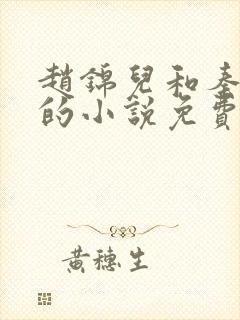 趙錦兒和秦
的小說免費
黃穗生